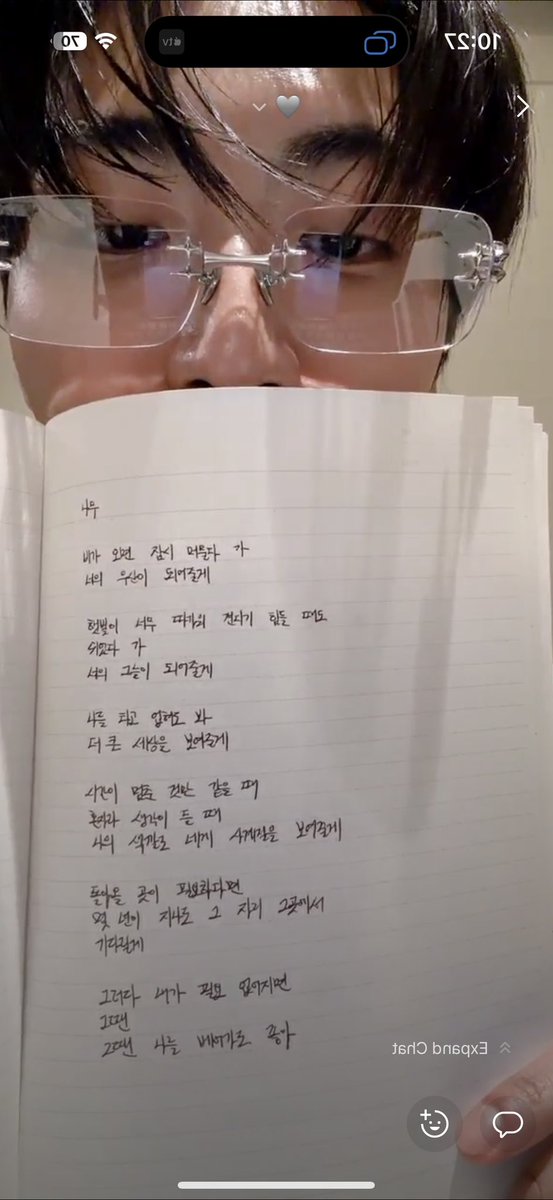 10:27
tv
70
나무
비가 오면 잠시 머물다 가
너의 우산이 되어줄게
햇빛이 너무 따가워 견디기 힘들 때도
쉬었다 가
너의 그늘이 되어줄게
나를 봐
더 큰 세상을 보여줄게
시간이 멈춘 것만 같을 때
혼자라 생각이 든 때
나의 색깔로 네게 사계절을 보여줄게
돌아올 곳이 필요하다면
몇 년이 지나도 그 자리 그곳에서
기다릴게
그러다 내가 필요 없어지면
그땐
그땐 나를 베어가도 좋아
Expand Chat